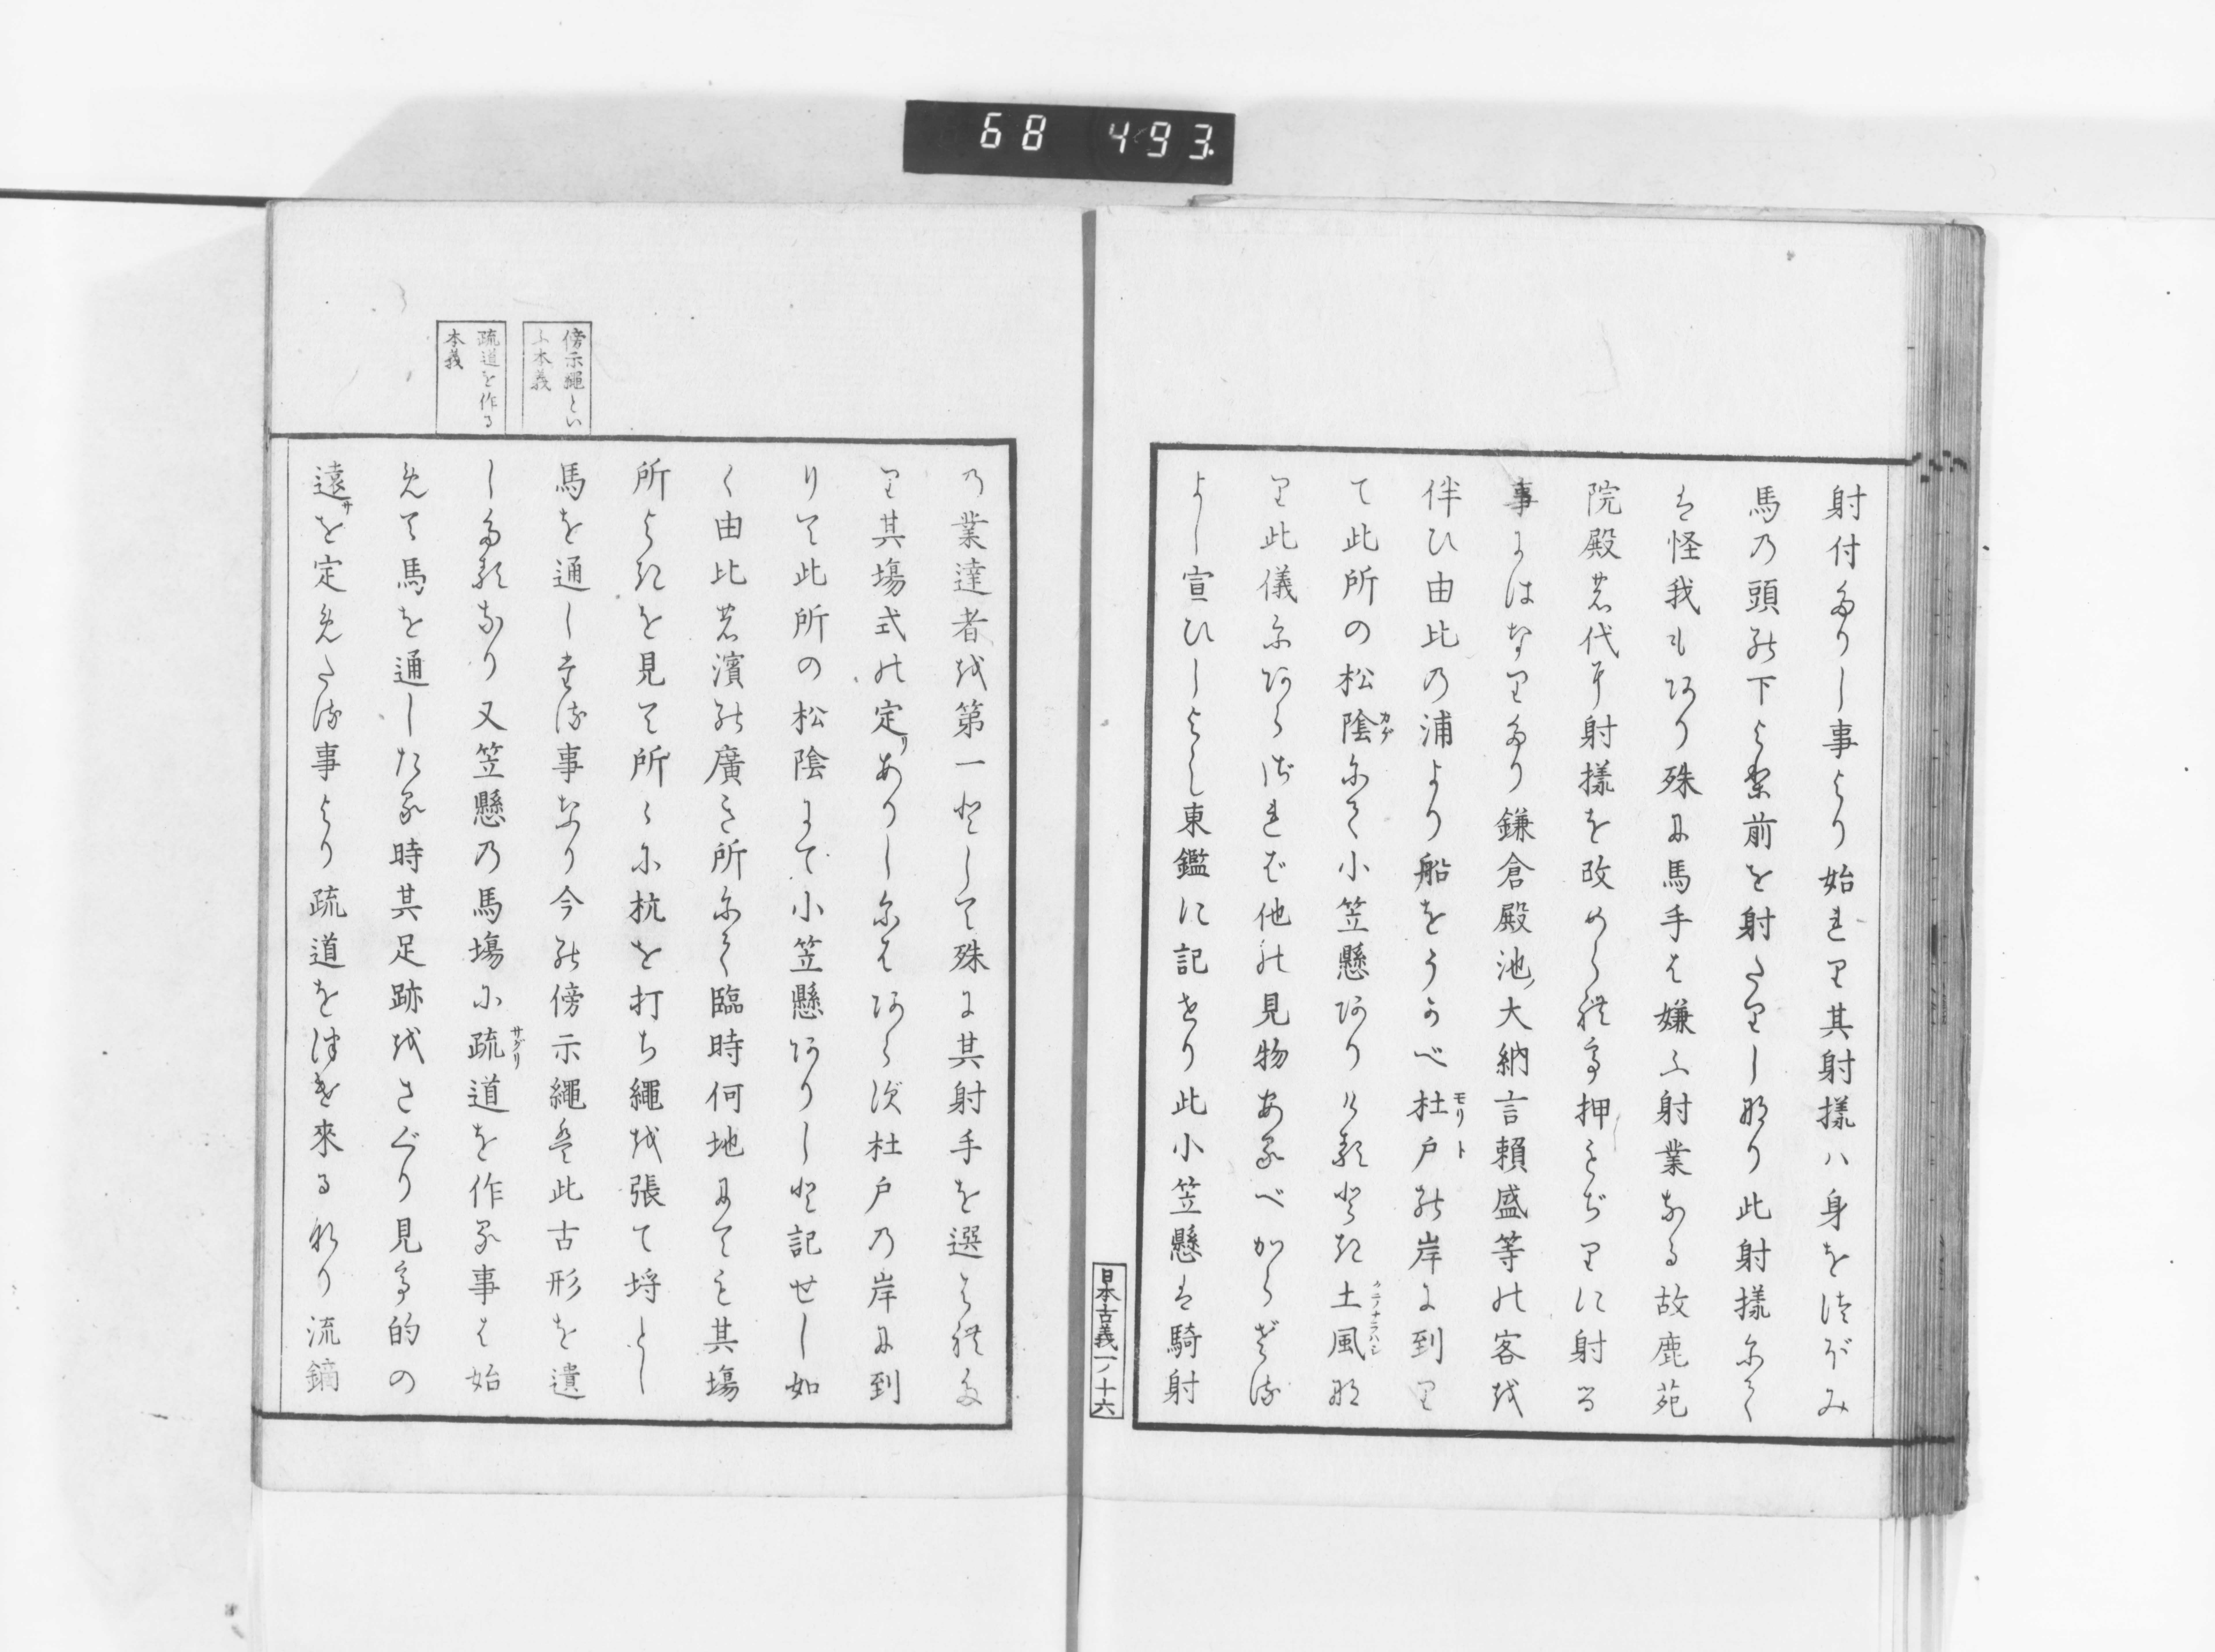 68 493
射付たりし事より始れり其射樣ハ身をつぼみ
馬の頭の下より前を射たりしなり此射樣にて
は怪我もあり殊に馬手は嫌ふ射業なる故鹿苑
院殿の代に射樣を改められて押もぢりに射る
事にはなりたり鎌倉殿池大納言賴盛等の客を
伴ひ由比の浦より船をうかべ杜戸モリトの岸に到り
て此所の松陰カゲにて小笠懸ありけるとき土風クニノナラハシな
り此儀にあらざれば他の見物あるべからざる
よし宣ひしよし東鑑に記せり此小笠懸は騎射
日本古義一ノ十六
の業達者を第一として殊に其射手を選はれた
り其塲式の定りありしにはあらず杜戸の岸に到
りて此所の松陰にて小笠懸ありしと記せし如
く由比の濱の廣き所にて臨時何地にても其塲
所よきを見て所々に杭を打ち繩を張て埒とし
馬を通したる事なり今の傍示繩は此古形を遺
したるなり又笠懸の馬塲に疏サグリ道を作る事は始
めて馬を通したる時其足跡をさぐり見て的の
遠サを定めたる事より疏道をつけ來るなり流鏑
傍示繩とい
ふ本義
疏道を作る
本義